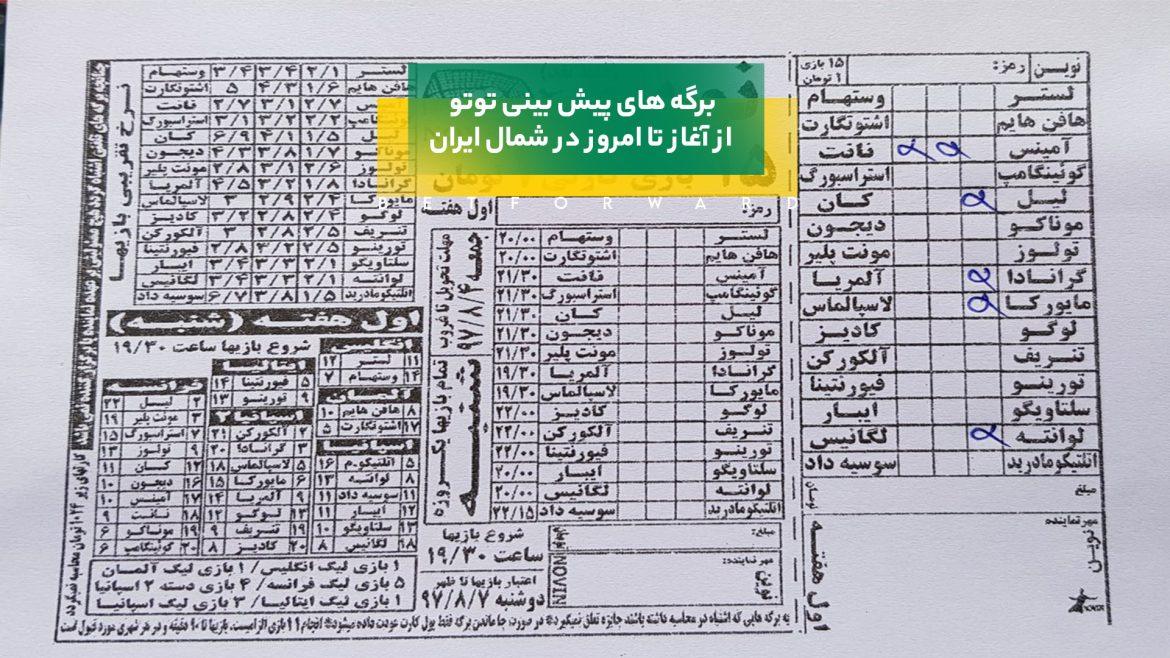 برگه های پیش بینی توتو
از آغاز تا امروز در شمال ایران
BETFORWARD
نوین رمز: ۱۵ بازی ۱ تومان
لستر وستهام
هافن هایم اشتوتگارت
آمینس نانت
گوئینگامپ استراسبورگ
لیل کان
موناکو دیجون
تولوز مونت پلیر
گرانادا آلمریا
مایورکا لاسپالماس
لوگو کادیز
تنریف آلکورکن
تورینو فیورنتینا
سلتاویگو ایبار
لوانته لگانیس
اتلتیکومادرید سوسیه داد
مبلغ
تومان
مهر نماینده
نوین
اول هفته
رمز: اول هفته
لستر وستهام ۲۰/۰۰
هافن هایم اشتوتگارت ۲۰/۰۰
آمینس نانت ۲۱/۳۰
گوئینگامپ استراسبورگ ۲۱/۳۰
لیل کان ۲۱/۳۰
موناکو دیجون ۲۱/۳۰
تولوز مونت پلیر ۲۱/۳۰
گرانادا آلمریا ۱۹/۳۰
مایورکا لاسپالماس ۱۹/۳۰
لوگو کادیز ۲۲/۰۰
تنریف آلکورکن ۲۲/۰۰
تورینو فیورنتینا ۲۲/۰۰
سلتاویگو ایبار ۲۰/۰۰
لوانته لگانیس ۲۰/۰۰
اتلتیکومادرید سوسیه داد ۲۲/۱۵
مهلت تحویل تا غروب
جمعه ۹۷/۸/۴
تمام بازیها یک روزه
شنبه
مبلغ:
مهر نماینده:
نوین
NOVIN
شروع بازیها
ساعت ۱۹/۳۰
اعتبار بازیها تا ظهر
دوشنبه ۹۷/۸/۷
نرخ تقریبی بازیها
لستر ۲/۱ ۳/۴ ۳/۴ وستهام
هافن هایم ۱/۶ ۴/۳ ۵ اشتوتگارت
آمینس ۲/۷ ۳/۱ ۲/۷ نانت
گوئینگامپ ۲/۲ ۳/۲ ۳/۱ استراسبورگ
لیل ۱/۵ ۴/۱ ۶/۹ کان
موناکو ۱/۷ ۳/۸ ۴/۳ دیجون
تولوز ۲/۶ ۳/۱ ۲/۸ مونت پلیر
گرانادا ۱/۸ ۳/۲ ۴/۵ آلمریا
مایورکا ۲/۴ ۲/۹ ۳ لاسپالماس
لوگو ۲/۴ ۲/۸ ۳/۲ کادیز
تنریف ۲/۵ ۲/۸ ۳ آلکورکن
تورینو ۲/۵ ۳/۲ ۲/۸ فیورنتینا
سلتاویگو ۲/۱ ۳/۴ ۳/۳ ایبار
لوانته ۲/۱ ۳/۳ ۳/۴ لگانیس
اتلتیکومادرید ۱/۵ ۳/۸ ۶/۷ سوسیه داد
اول هفته (شنبه)
شروع بازیها ساعت ۱۹/۳۰
انگلیس
۱۱ لستر ۱۲
۱۴ وستهام ۷
آلمان
۸ هافن هایم ۱۰
۱۷ اشتوتگارت ۵
اسپانیا
۵ اتلتیکو.م ۱۶
۸ لوانته ۱۳
۱۱ سوسیه داد ۱۱
۱۲ ایبار ۱۱
۱۳ سلتاویگو ۱۰
۱۸ لگانیس ۸
ایتالیا
۵ فیورنتینا ۱۴
۹ تورینو ۱۳
اسپانیا ۲
۲ آلکورکن ۲۱
۳ گرانادا ۲۰
۵ لاسپالماس ۱۸
۶ مایورکا ۱۵
۹ آلمریا ۱۴
۱۳ لوگو ۱۲
۱۹ تنریف ۹
۲۰ کادیز ۸
فرانسه
۲ لیل ۲۲
۳ مونت پلیر ۱۹
۷ استراسبورگ ۱۵
۹ تولوز ۱۳
۱۲ کان ۱۱
۱۶ دیجون ۱۰
۱۷ آمینس ۱۰
۱۸ نانت ۹
۱۹ موناکو ۶
۲۰ گوئینگامپ ۶
۱ بازی لیگ انگلیس/ ۱ بازی لیگ آلمان
۵ بازی لیگ فرانسه/ ۴ بازی دسته ۲ اسپانیا
۱ بازی لیگ ایتالیا/ ۳ بازی لیگ اسپانیا
به برگه هایی که اشتباه در محاسبه داشته باشند جایزه تعلق نمیگیرد در صورت جا ماندن برگه فقط پول کارت عودت داده میشود انجام ۱۱ بازی الزامیست. بازیها تا ۹۰ دقیقه و در هر شهری مورد قبول است